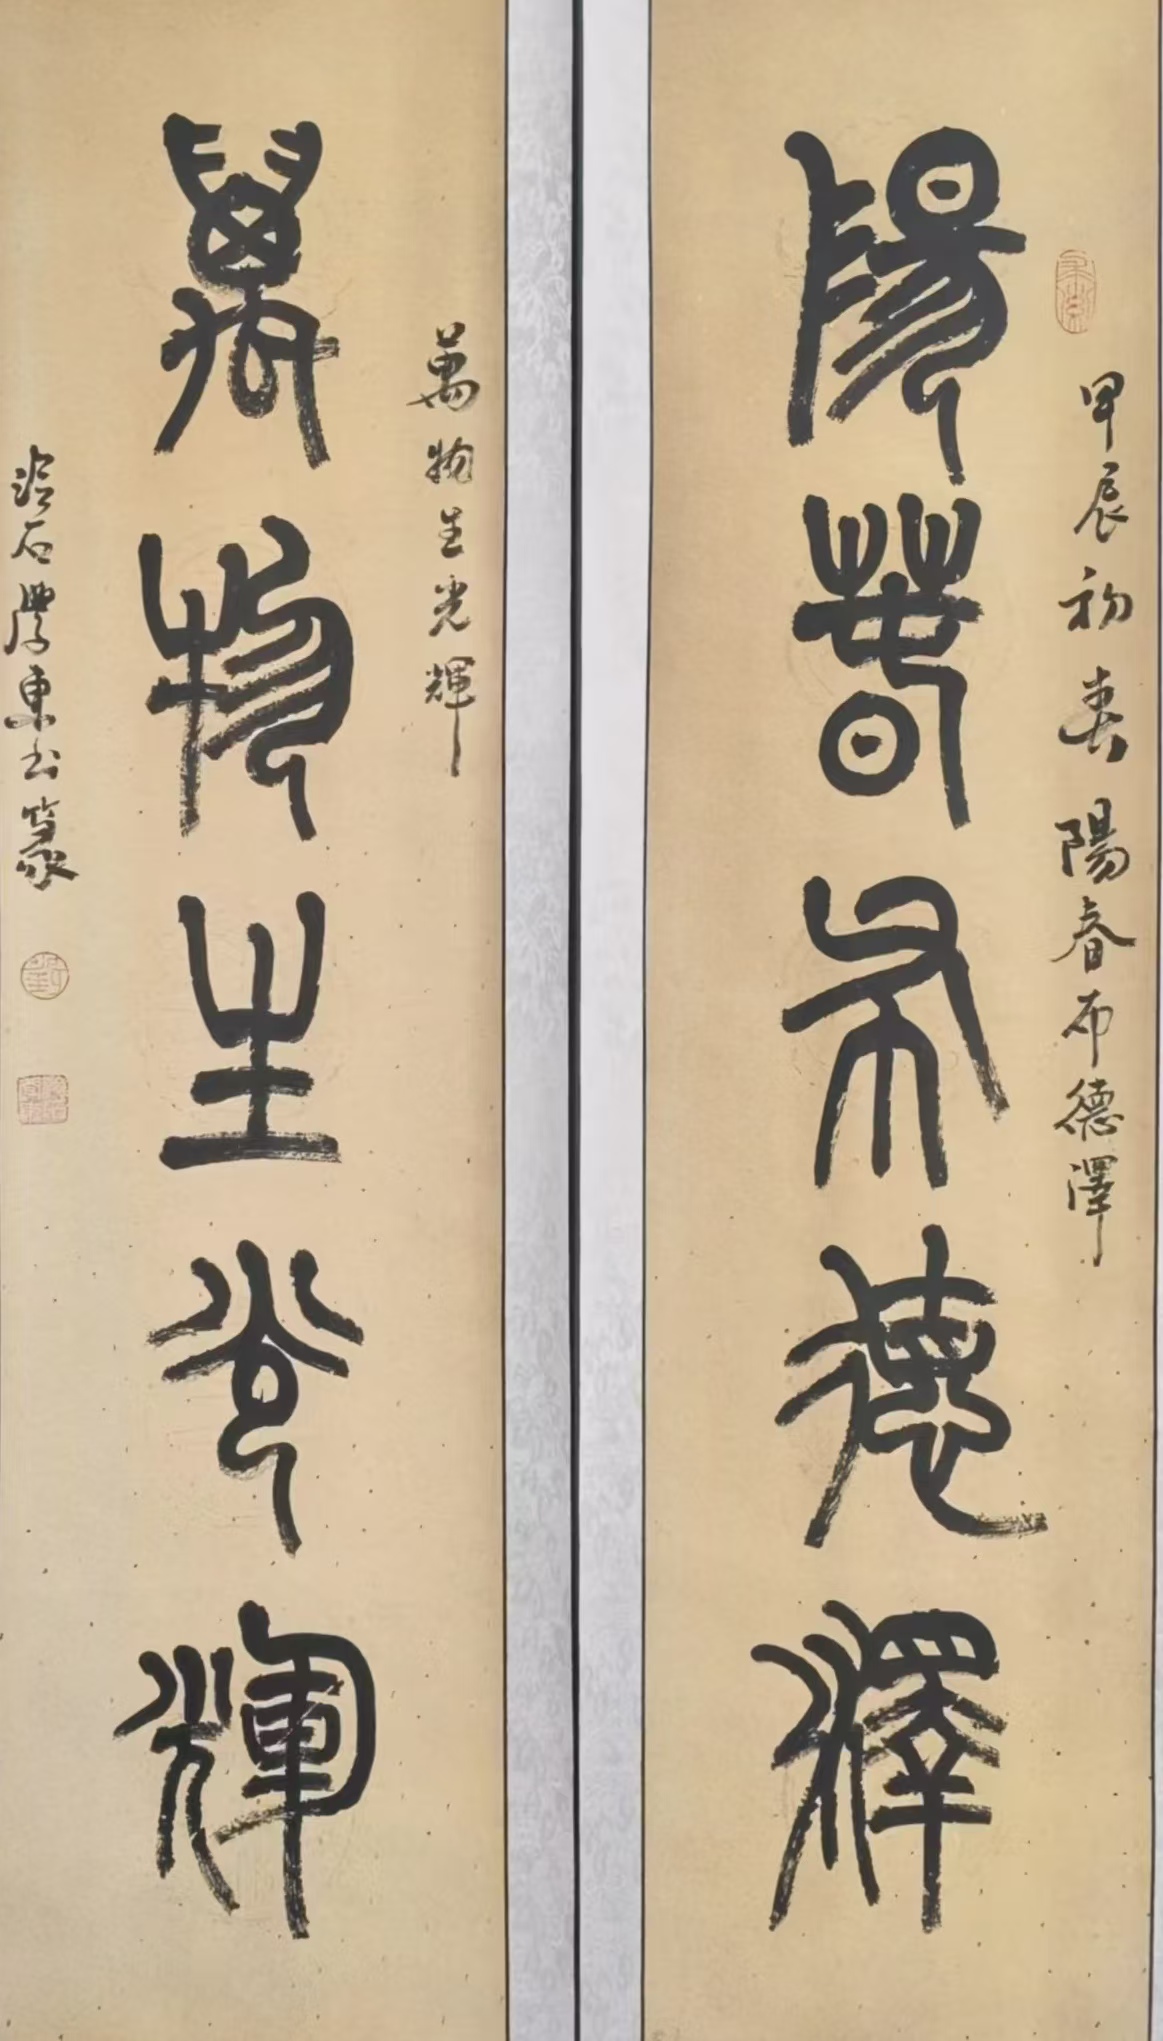 甲辰初春陽春布德澤
陽春布德澤
萬物生光輝
萬物生光輝
石學東書篆